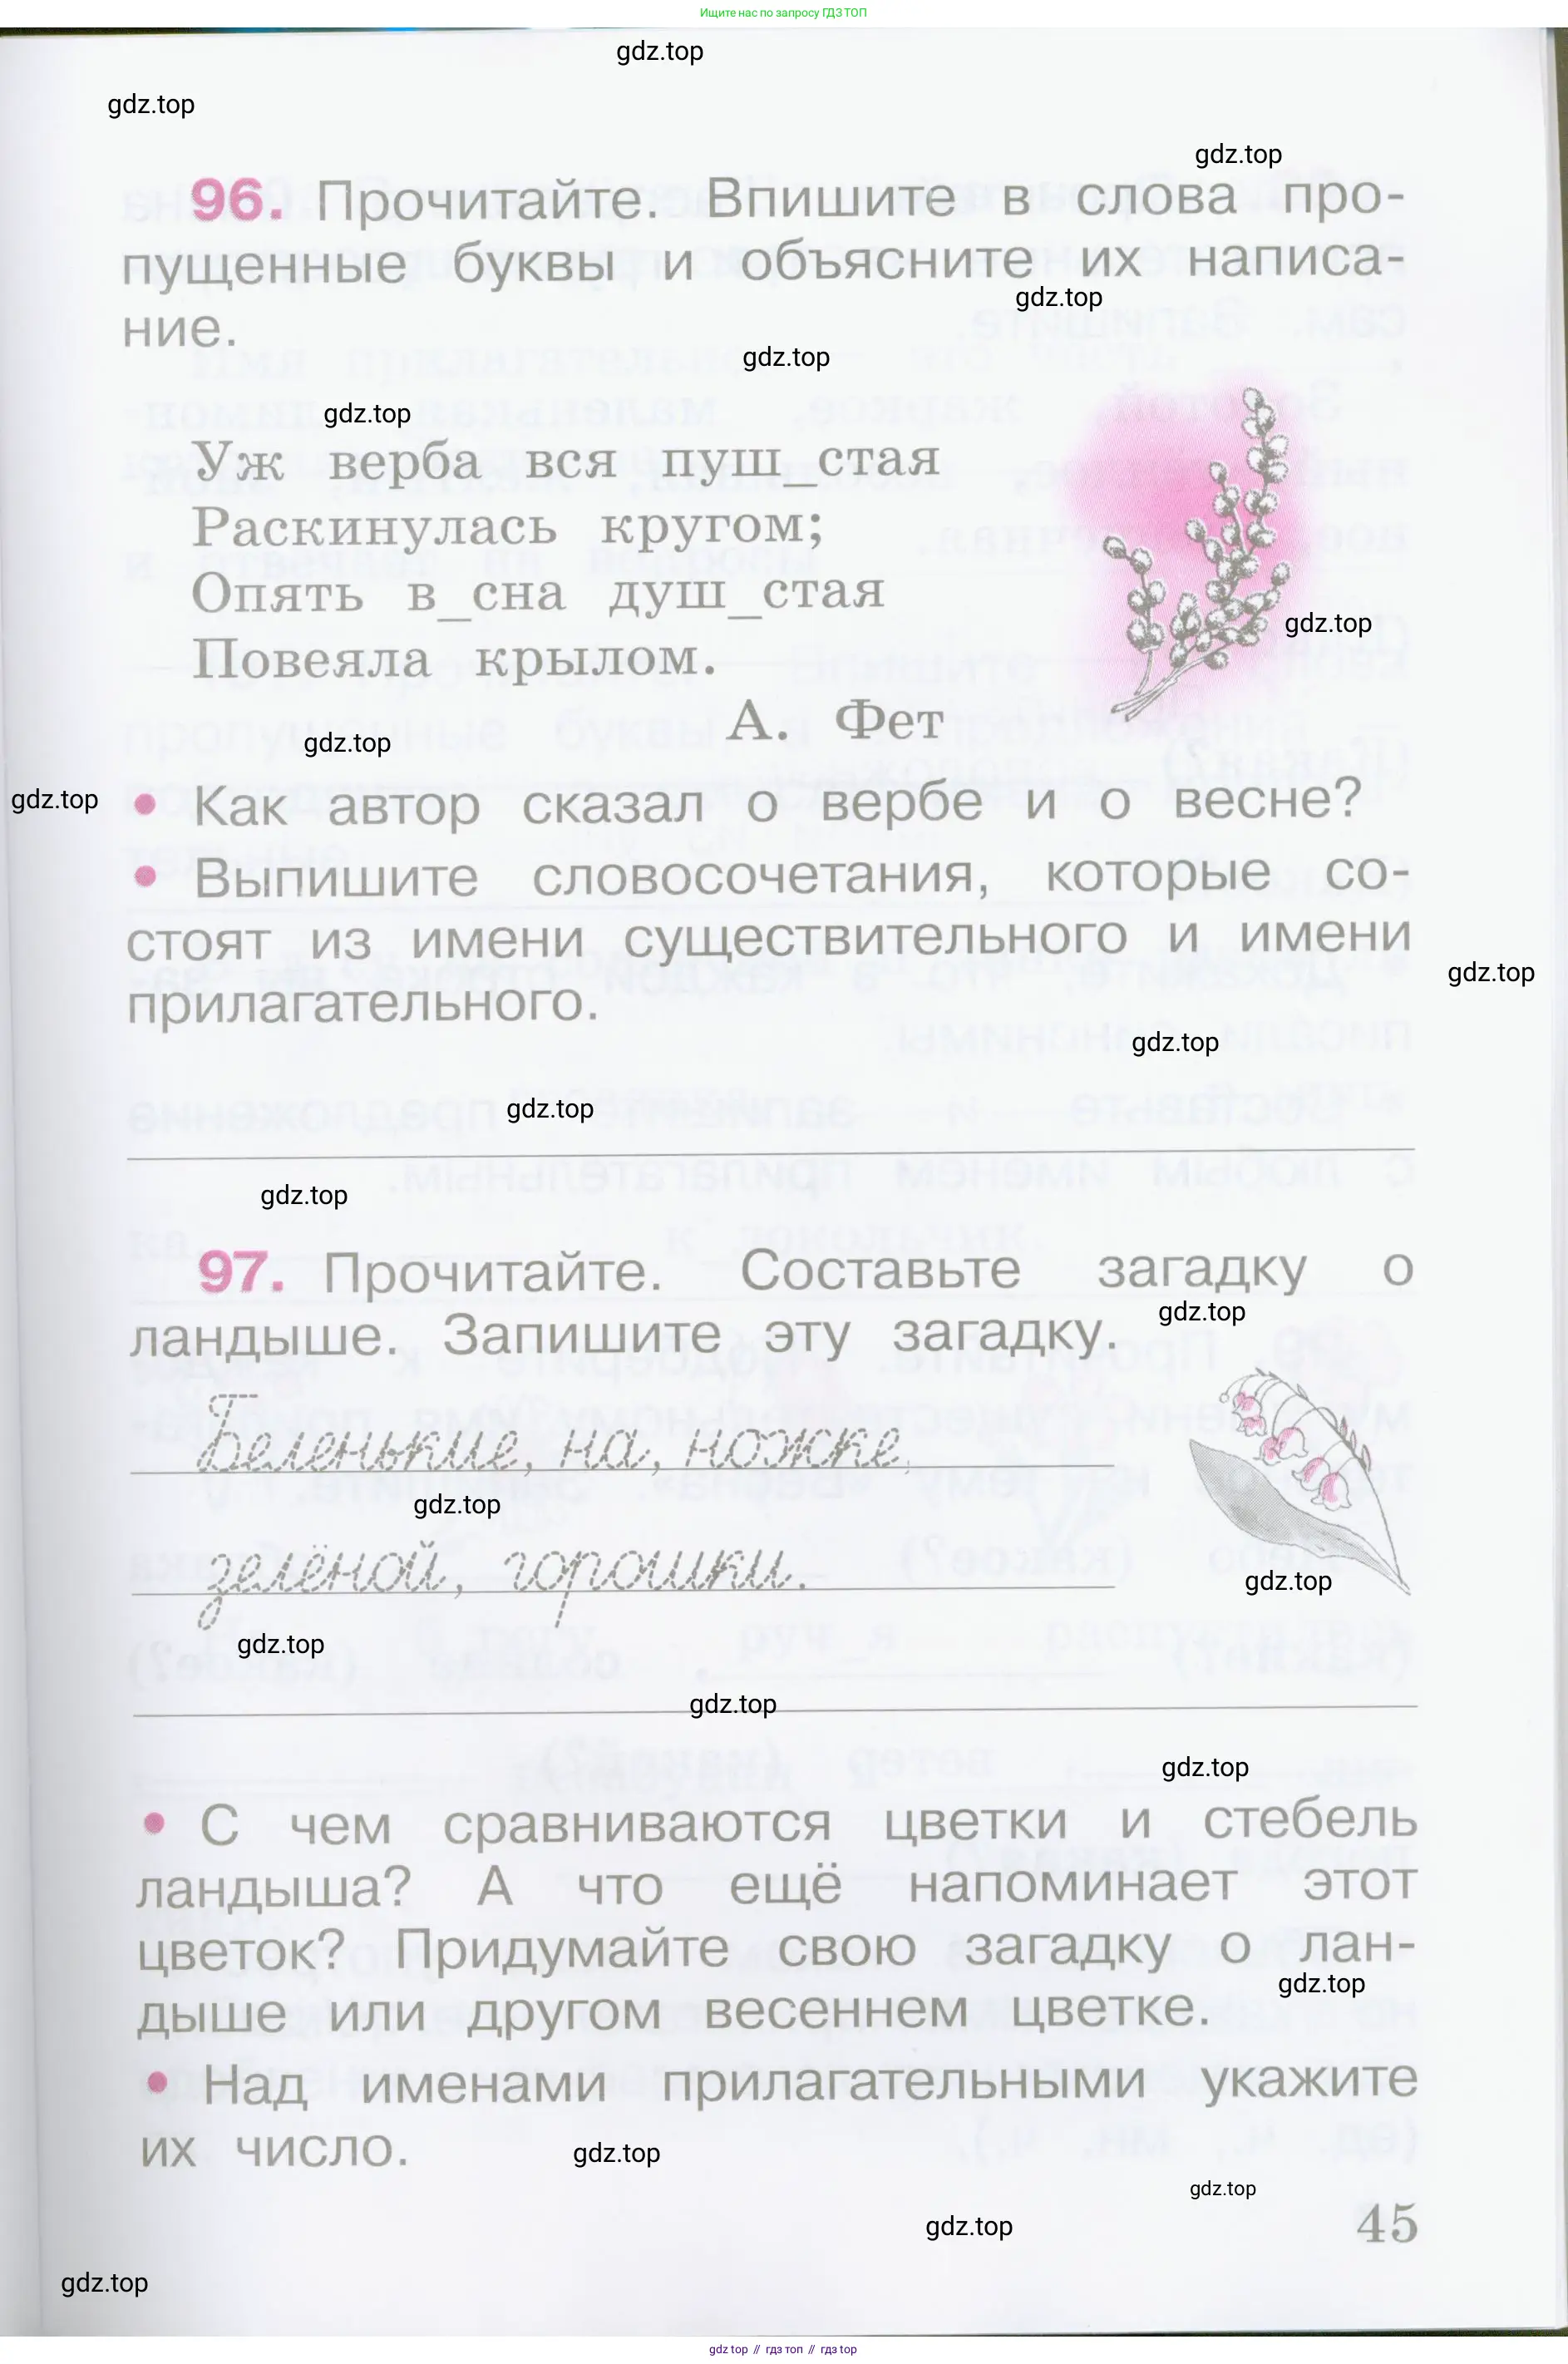 Ищите нас по запросу ГДЗ ТОП
gdz.top
gdz.top
gdz.top
96. Прочитайте. Впишите в слова про-
пущенные буквы и объясните их написа-
gdz.top
ние.
gdz.top
gdz.top
Уж верба вся пуш_стая
Раскинулась кругом;
Опять в_сна душ_стая
gdz.top
Повеяла крылом.
А. Фет
gdz.top
gdz.top
• Как автор сказал о вербе и о весне?
• Выпишите словосочетания, которые со-
стоят из имени существительного и имени
gdz.top
прилагательного.
gdz.top
gdz.top
gdz.top
97. Прочитайте. Составьте загадку о
gdz.top
ландыше. Запишите эту загадку.
Беленькие, на, ножке,
gdz.top
зелёной, горошки.
gdz.top
gdz.top
gdz.top
gdz.top
• С чем сравниваются цветки и стебель
ландыша? А что ещё напоминает этот
цветок? Придумайте свою загадку о лан-
gdz.top
дыше или другом весеннем цветке.
• Над именами прилагательными укажите
их число.
gdz.top
gdz.top
gdz.top
45
gdz.top
gdz top // гдз топ // gdz top